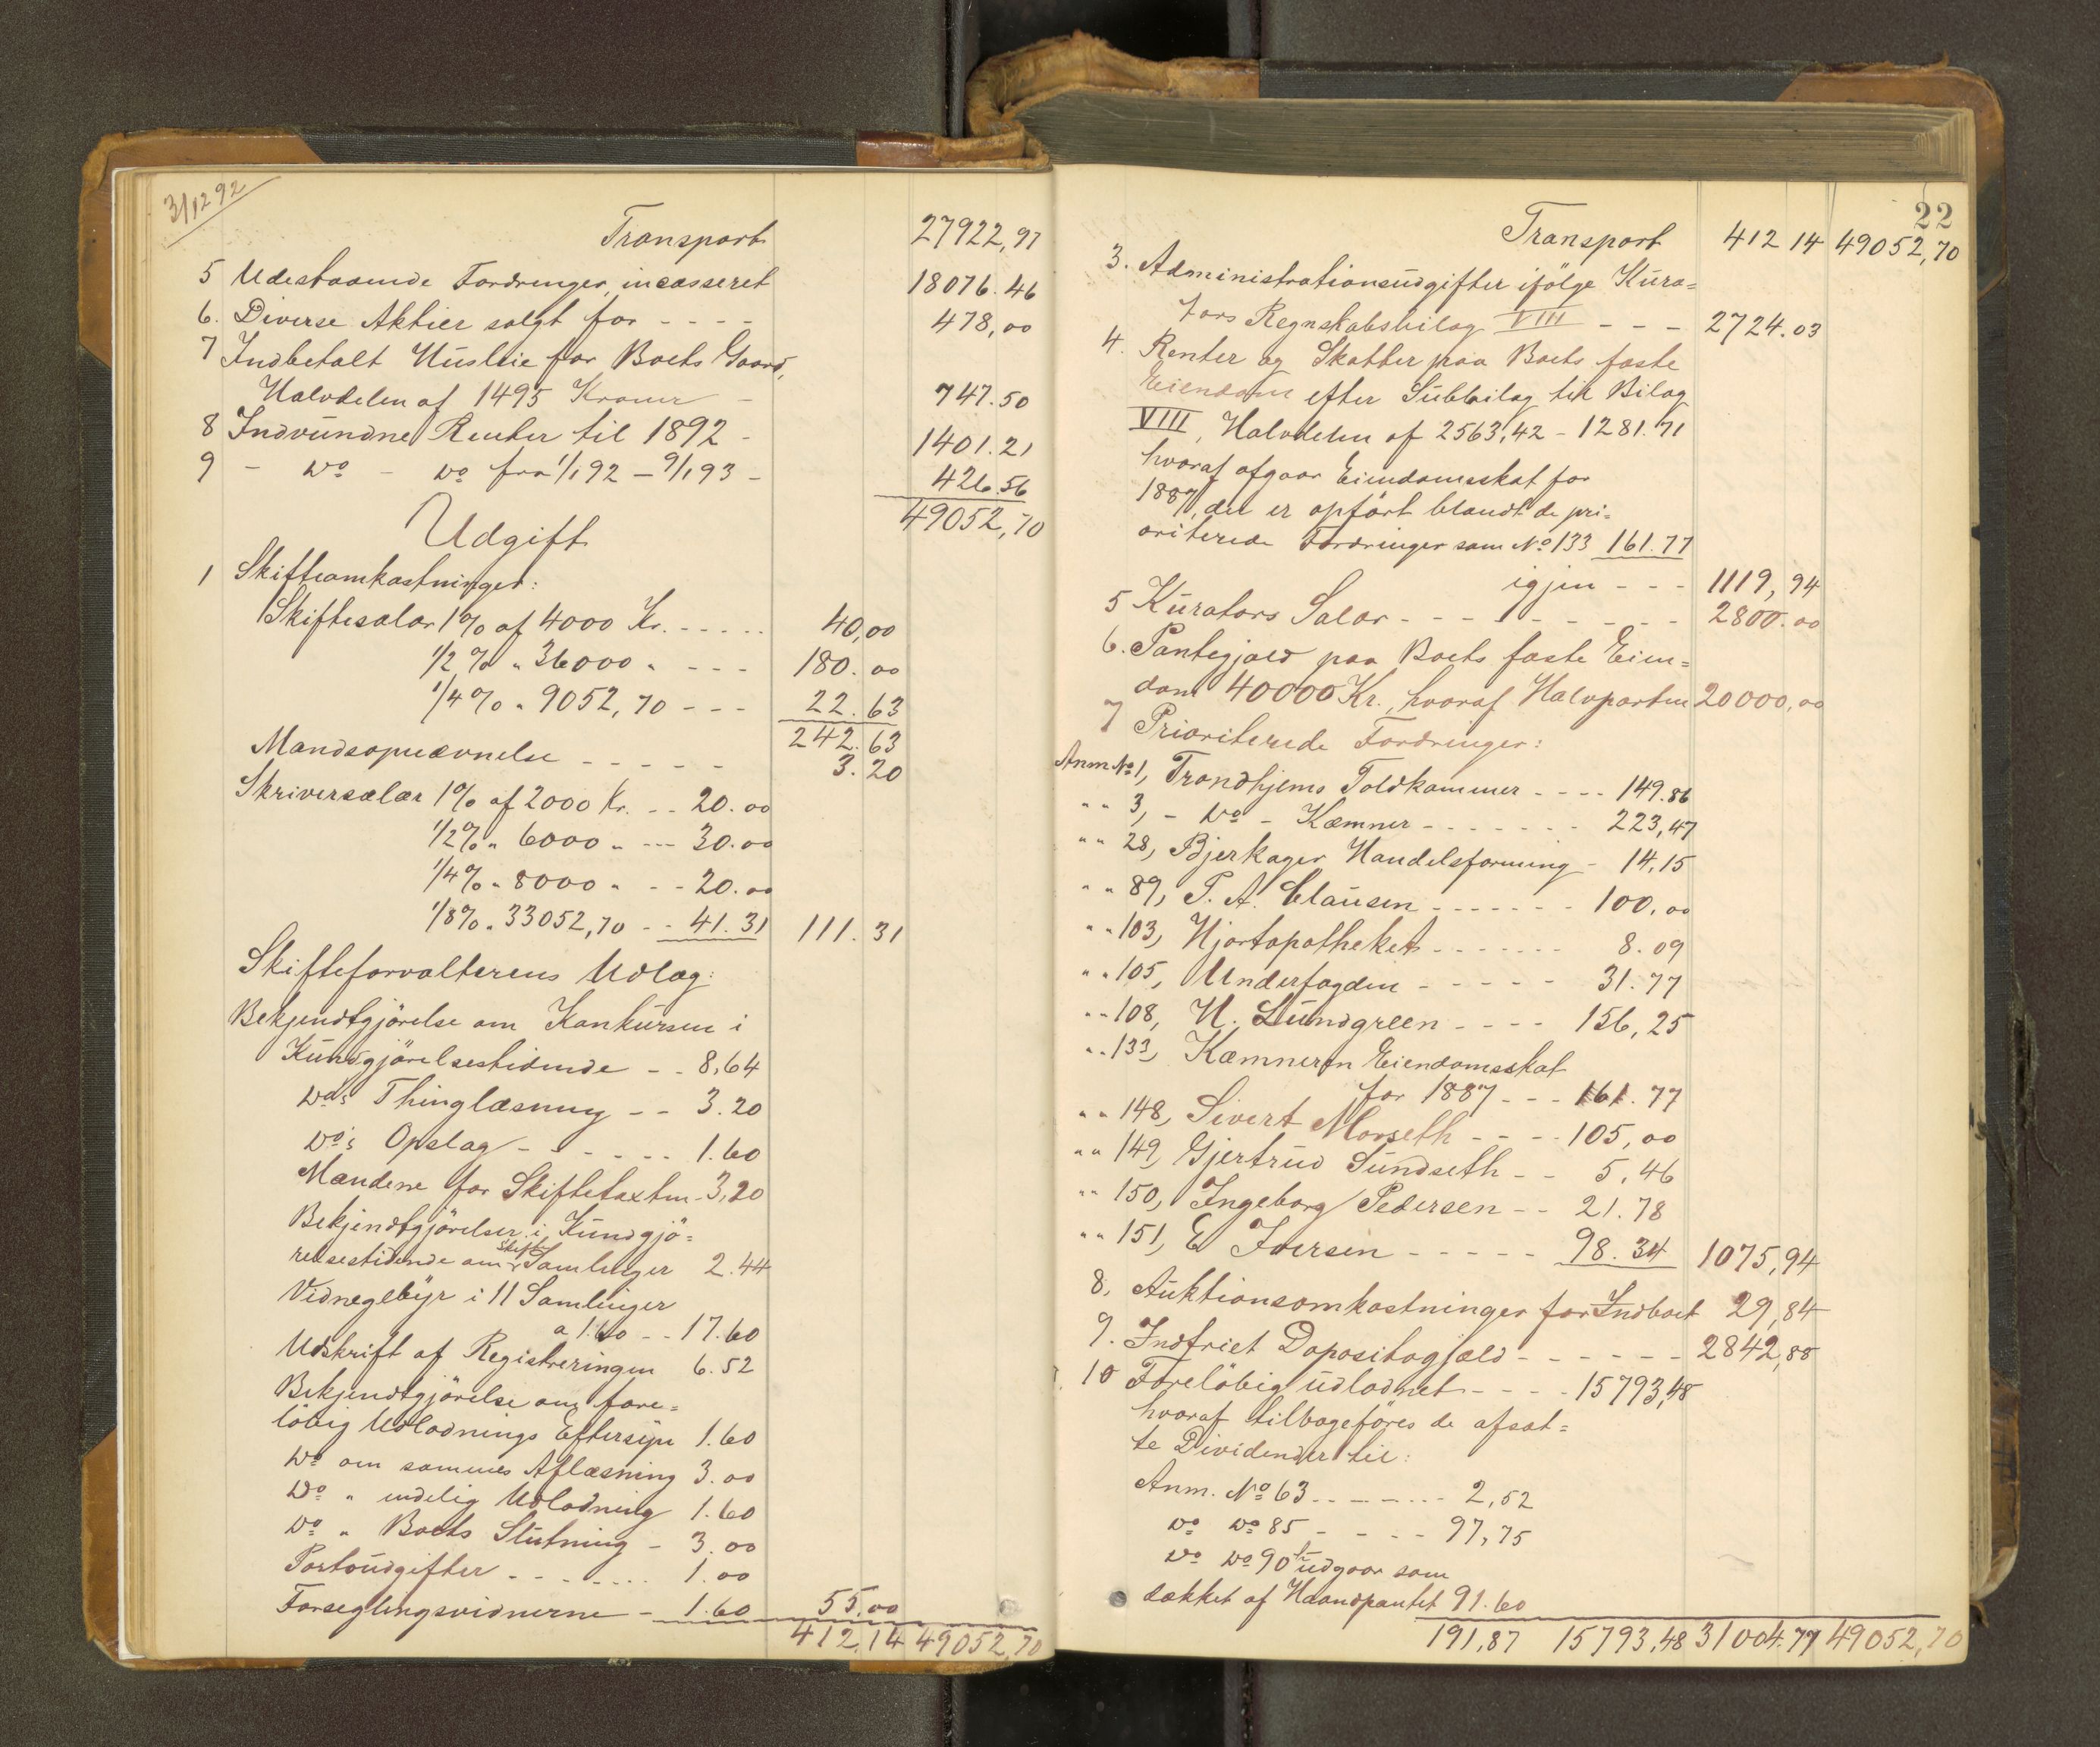 3/12 92
Transport 27922,97
5 Udestaaende Fordringer, incasseret 18076.46
6. Diverse Aktier solgt for - - - - 478,00
7 Indbetalt Husleie for Boets Gaard,
Halvdelen af 1495 Kroner - 747.50
8 Indvundne Renter til 1892 - 1401.21
9 - Do - Do fra 1/1 92 - 9/1 93 - 426.56
49052,70
Udgift
1 Skifteomkostninger:
Skiftesalær 1% af 4000 Kr. - - - - - 40,00
1/2 % " 36000 " - - - 180.00
1/4 % " 9052,70 - - - 22.63
242.63
Mandsopnævnelse - - - - - 3.20
Skriversalær 1% af 2000 Kr. - - 20.00
1/2 % " 6000 " - - - 30.00
1/4 % " 8000 " - - 20.00
1/8 % " 33052,70 - - 41.31 111.31
Skifteforvalterens Udlæg:
Bekjendtgjörelse om Konkursen i
Kundgjörelsestidende - - 8,64
Do's Thinglæsning - - 3.20
Do's Opslag - - - - - - 1.60
Mændene for Skiftetaxten - 3,20
Bekjendtgjörelser i Kundgjö=
relsestidende om Skifte Samlinger 2.44
Vidnegebyr i 11 Samlinger
a 1.60 - - 17.60
Udskrift af Registreringen 6.52
Bekjendtgjörelse om fore=
löbig Udlodnings Eftersyn 1.60
Do om sammes Aflæsning 3.00
Do " endelig Udlodning 1.60
Do " Boets Slutning - 3.00
Portoudgifter - - - - - - - 1.00
Forseglingsvidnerne - 1.60 55,00
412.14 49052,70
22
Transport 412 14 49052,70
3. Administrationsudgifter ifölge Kura=
tors Regnskabsbilag VIII - - - 2724.03
4. Renter og Skatter paa Boets faste
Eiendom efter Subbilag til Bilag
VIII, Halvdelen af 2563,42 - 1281.71
hvoraf afgaar Eiendomsskat for
1887, der er opfört blandt de pri=
oriterede Fordringer som No 133 161.77
igjen - - - 1119,94
5 Kurators Salær - - - - - - - - - 2800.00
6. Pantegjæld paa Boets faste Eien=
dom 40000 Kr., hvoraf Halvparten 20000,00
7 Prioriterede Fordringer:
Anm No 1, Trondhjems Toldkammer - - - - 149.86
" " 3, - Do - Kæmner - - - - - - - 223,47
" " 28, Bjerkager Handelsforening - 14,15
" " 89, P. A. Clausen - - - - - - 100,00
" " 103, Hjortapotheket - - - - - - 8.09
" " 105, Underfogden - - - - - 31.77
" " 108, H. Lundgreen - - - - 156,25
" " 133, Kæmneren Eiendomsskat
for 1887 - - - 161.77
" " 148, Sivert Morseth - - - - 105,00
" " 149, Gjertrud Sundseth - - 5,46
" " 150, Ingeborg Pedersen - - 21.78
" " 151, E Iversen - - - - - 98.34 1075,94
8. Auktionsomkostninger for Indboet 29,84
9. Indfriet Depositogjæld - - - - - - 2842,88
10 Foreløbig udlodnet - - - - 15793,48
hvoraf tilbageföres de afsat=
te Dividender til:
Anm. No 63 - - - - - - - 2,52
Do Do 85 - - - - 97,75
Do Do 90 udgaar som
dækket af Haandpantet 91.60
191,87 15793,48 31004.77 49052,70